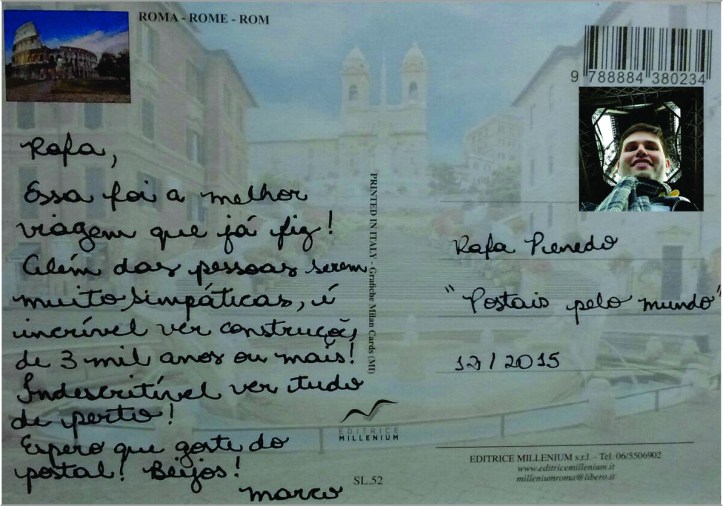 ROMA - ROME - ROM
9 788884 380234
Rafa,
Essa foi a melhor
viagem que já fiz!
Além das pessoas serem
muito simpáticas, é
incrível ver construções
de 3 mil anos ou mais!
Indescritível ver tudo
de perto!
Espero que goste do
postal! Beijos!
Marco
PRINTED IN ITALY - Grafiche Milan Cards (MI)
EDITRICE
MILLENIUM
SL.52
Rafa
"Postais pelo mundo"
12/2015
EDITRICE MILLENIUM s.r.l. - Tel. 06/5506902
www.editricemillenium.it
milleniumroma@libero.it